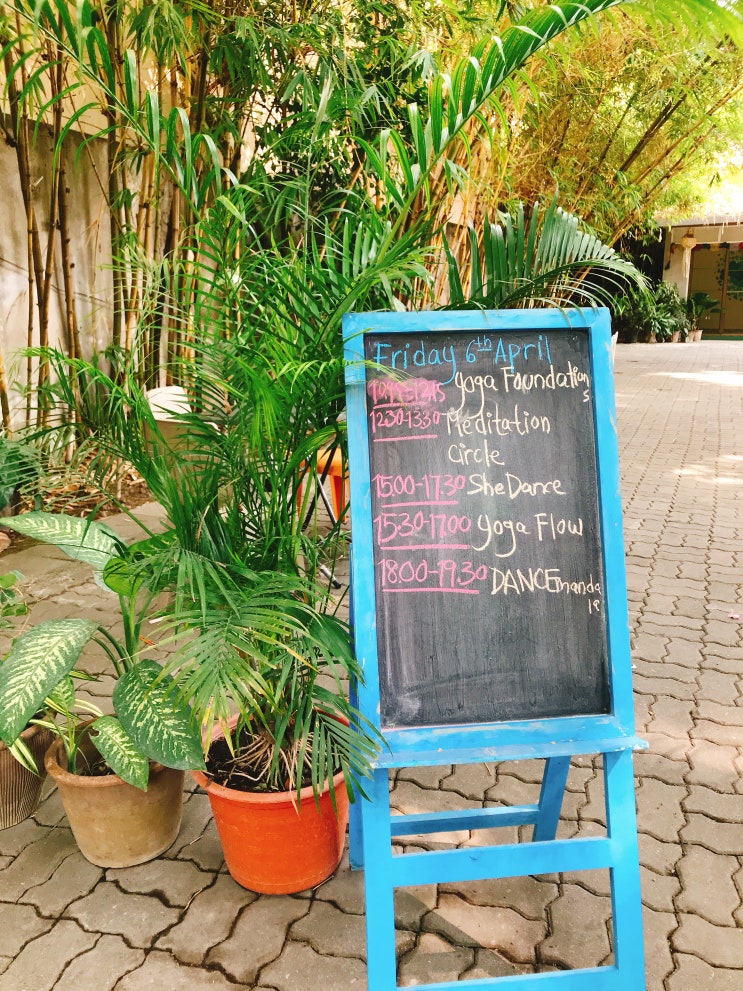 Friday 6th April
Yoga Foundations
1230-1330 Meditation
Circle
15.00-17.30 SheDance
1530-1700 Yoga Flow
1800-1930 DANCEmanda
la